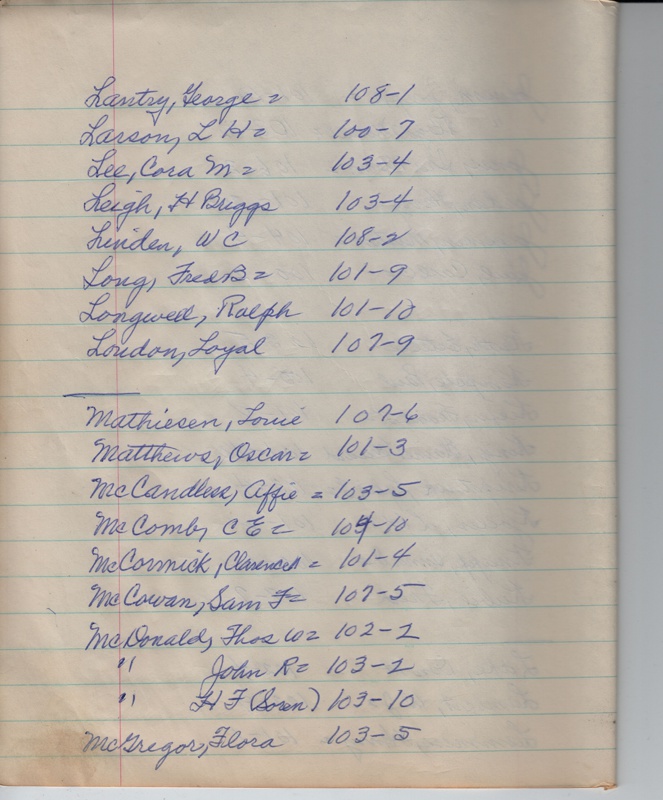 Lantry, George = 108-1
Larson, L H = 100-7
Lee, Cora M = 103-4
Leigh, H Briggs 103-4
Linden, W C 108-2
Long, Fred B = 101-9
Longwed, Ralph 101-10
Loudon, Loyal 107-9
Mathiesen, Louie 107-6
Matthews, Oscar = 101-3
McCandless, Affie = 103-5
McComb, C E = 104-10
McCormick, Clarence = 101-4
McCowan, Sam F = 107-5
McDonald, Thos W = 102-2
" John R = 103-2
" H F (Soren) 103-10
McGregor, Flora 103-5